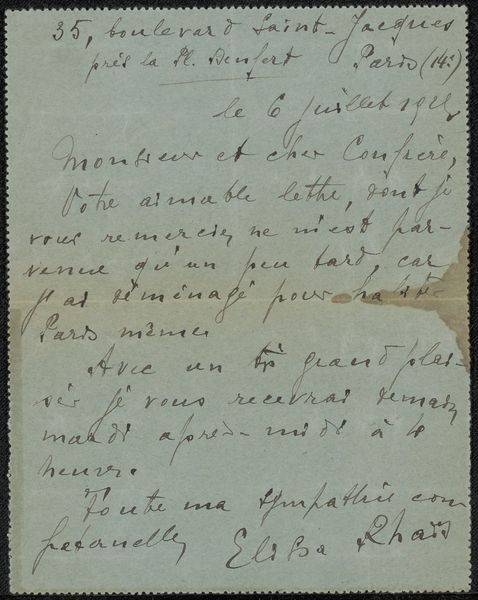 35, boulevard Saint-Jacques
près la Pl. Denfert Paris (14e)
le 6 juillet
Monsieur et cher Confrère,
Votre aimable lettre, dont je
vous remercie, ne m'est par-
venue qu'un peu tard, car
j'ai déménagé pour habiter
Paris même.
Avec un très grand plai-
sir je vous recevrai demain
mardi après-midi à 4
heures.
Toute ma sympathie con
fraternelle,
Elissa Rhaïs